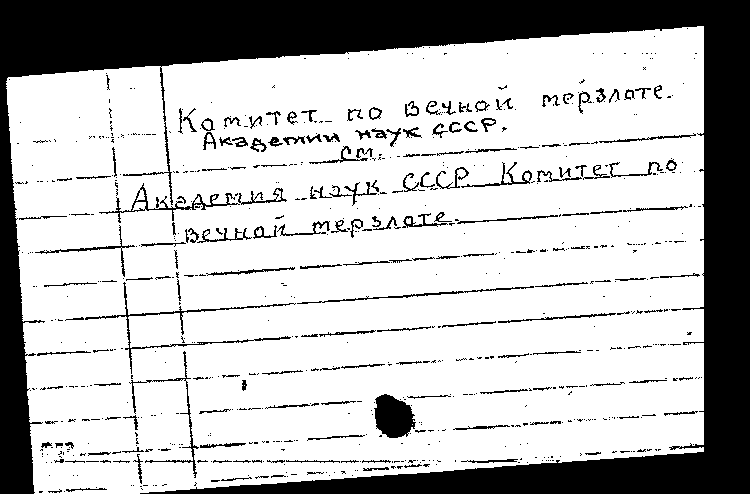 Комитет по вечной мерзлоте.
Академии наук СССР.
см.
Академия наук СССР. Комитет по
вечной мерзлоте.